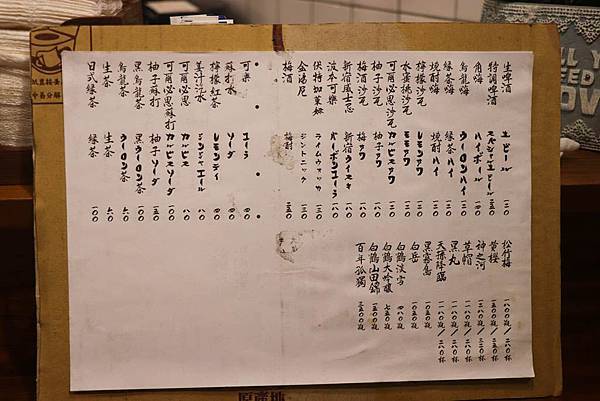 生啤酒 生ビール 一二〇
特調啤酒 スペシャエール 一五〇
角嗨 ハイボール 一四〇
烏龍嗨 ウーロンハイ 一二〇
綠茶嗨 緑茶ハイ 一二〇
燒酎嗨 焼酎ハイ 一二〇
檸檬沙瓦 レモサワ 一二〇
水蜜桃沙瓦 モモサワ 一二〇
可爾必思沙瓦 カルピサワ 一二〇
柚子沙瓦 柚子サワ 一二〇
梅酒沙瓦 梅サワ 一二〇
新宿威士忌 新宿ウイスキ 一八〇
波本可樂 バーボンコーラ 一八〇
伏特加萊姆 ライムウォッカ 一五〇
金湯尼 ジントニック 一五〇
梅酒 梅酎 一五〇
可樂 コーラ 四〇
蘇打水 ソーダ 四〇
檸檬紅茶 レモンティ 六〇
姜汁汽水 ジンジャエール 八〇
可爾必思 カルピス 一〇〇
可爾必思蘇打 カルピスソーダ 一〇〇
柚子蘇打 柚子ソーダ 一五〇
黑烏龍茶 黒ウーロン茶 一〇〇
烏龍茶 ウーロン茶 六〇
生茶 生茶 六〇
日式綠茶 緑茶 一〇〇
松竹梅 一八〇〇瓶/二八〇杯
黄櫻 一五〇〇瓶/二五〇杯
神之河
草帽 一一八〇瓶/二八〇杯
黑丸 一一八〇瓶/二八〇杯
天孫降臨 一一八〇瓶/二八〇杯
黑霧島 一〇五〇瓶
白岳 一〇五〇瓶
白鶴淡雪 四八〇瓶
白鶴大吟釀 七五〇瓶
白鶴山田錦 一五〇〇瓶
百年孤獨 三五〇〇瓶